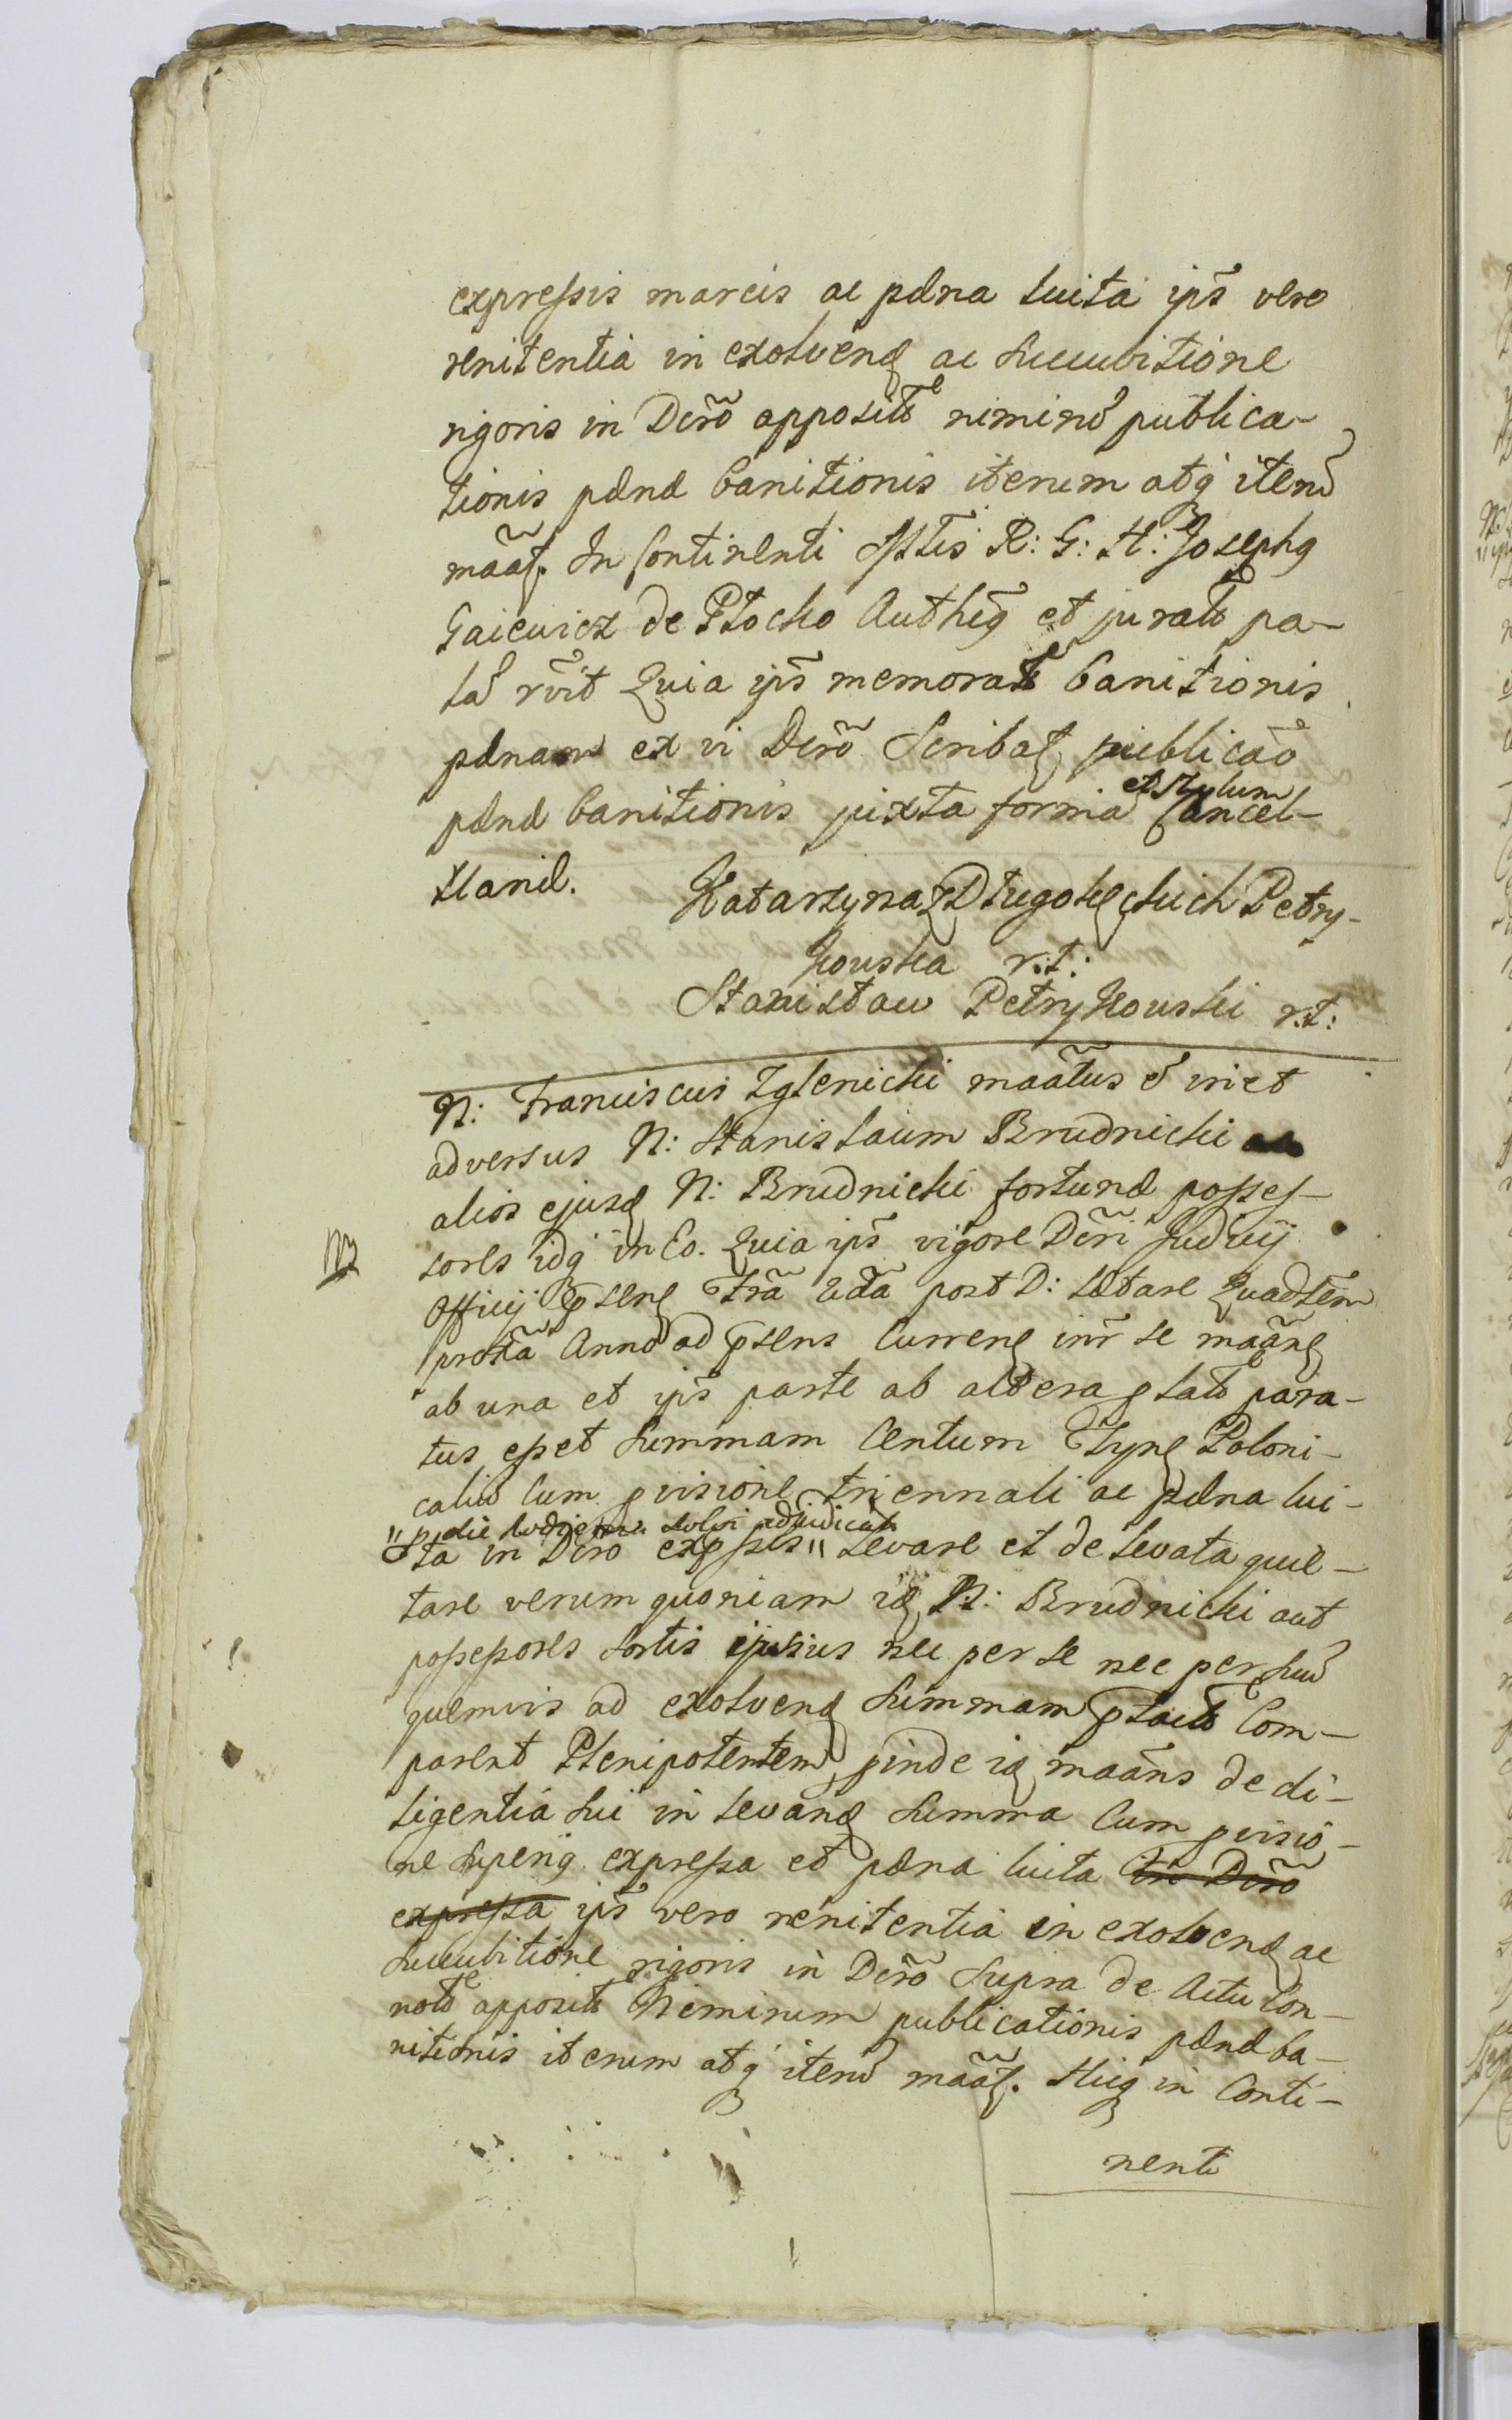 expressis marcis ac pæna luita ips̃ vero
renitentia in exolvenȩ ac succubitione
rigoris in Dcr̃o appositæ nimirũ publica-
tionis pænæ banitionis iterum atq; iterũ
mããt. In Continenti Mtis R: G: H: Joseph9
Gaiewicz de Płocko Authen9 et jurats pa-
lã rvĩt Quia ips̃ memoratæ banitionis
pænam ex vi Dcr̃o Scribat publicão
pænæ banitionis juxta formã et stylum Cancel-
llariæ.
Katarzyna z Długołęckich Petry-
kowska r.t:
Stanisław Petrykowski r.t:
N: Franciscus Zglenicki maãtus ẽ in et
adversus N: Stanislaum Brudnicki
alios ejusd N: Brudnicki fortunæ posses-
sores idq; in Eo. Quia ips̃ vigore Dcri Judicij
Officij p̃senȩ Fr̃ã 2dã post D: Lætare Quadr̃em
proxã Anno ad p̃sens Currenȩ inr̃ se maãnȩ
ab una et ips̃ parte ab altera lato para-
tus esset Summam Centum Tynȩ Poloni-
calium Cum provisione triennali ac pæna lui-
" die hodierna solvi adjudicatã
ta in Dcro expssis " Levare et de levata quie-
tare verum quoniam id N: Brudnicki aut
possessores sortis ipsius nec per se nec per suũ
quemvis ad exolvenȩ Summam Com-
parent Plenipotentem, proinde id maãns de di-
ligentia sui in levanȩ Summa Cum provisio-
ne superiq expressa et pæna luita in Dcro
expressa ips̃ vero renitentia in exolvenȩ ac
Succubitione rigoris in Dcr̃o Supra de Actu Con-
notõ appositæ Nimirum publicationis pænæ ba-
nitionis iterum atq; iterũ mããt. Hicq in Conti-
nenti